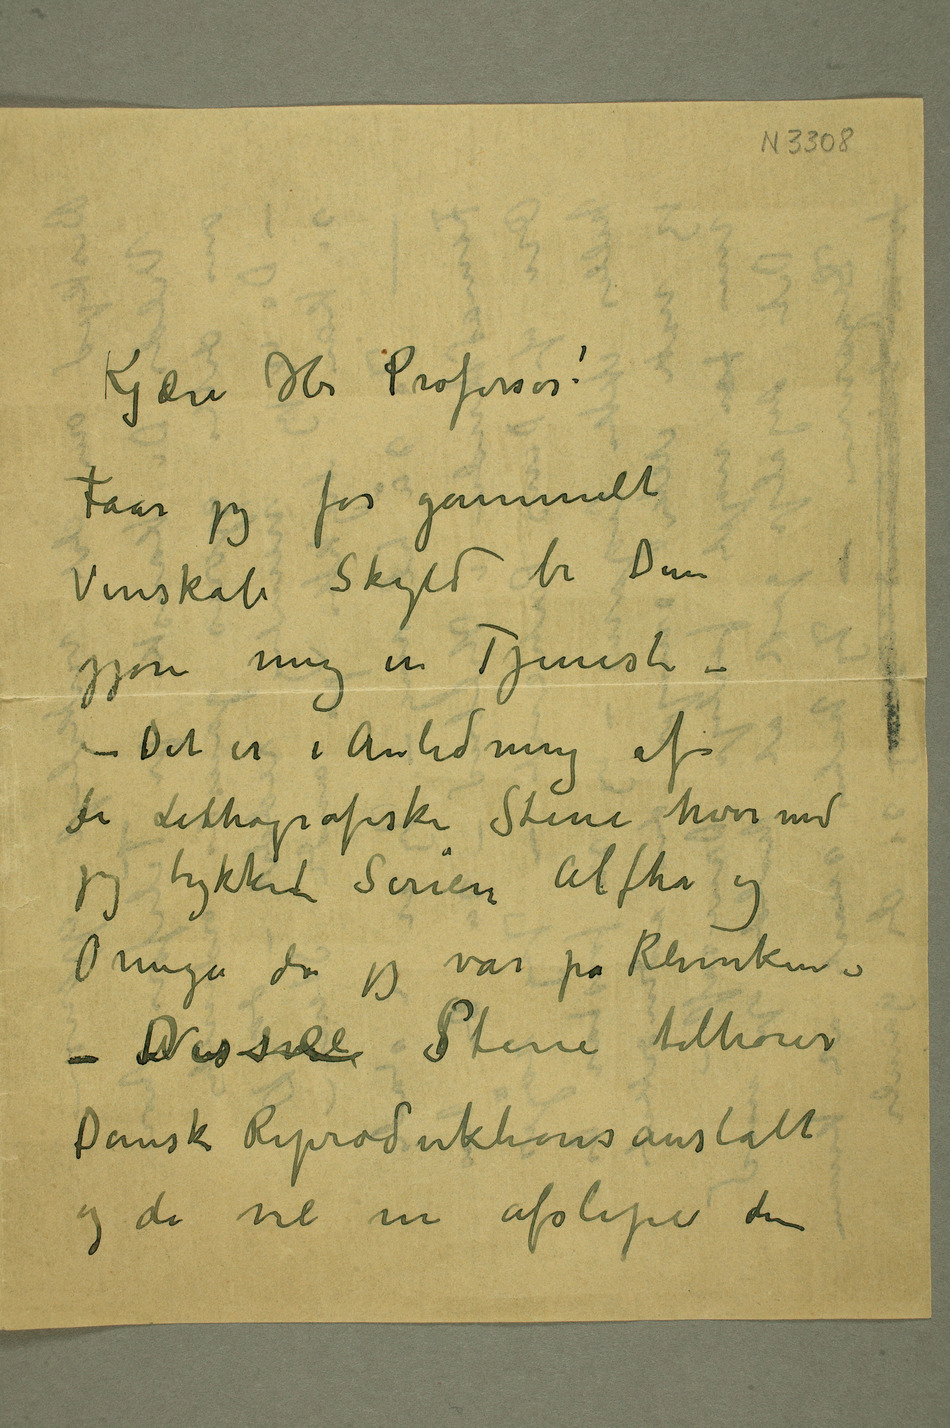 N 3308
Kjære Hr Professor!
Faar jeg for gammelt
Venskabs Skyld be Dem
gjøre mig en Tjeneste –
– Det er i Anledning af
de Lithografiske Stene hvormed
jeg trykked Serien Alfha og
Omega da jeg var på Kliniken –
– Disse Stene tilhører
Dansk Reproduktionsanstalt
og de vil nu afslipe dem